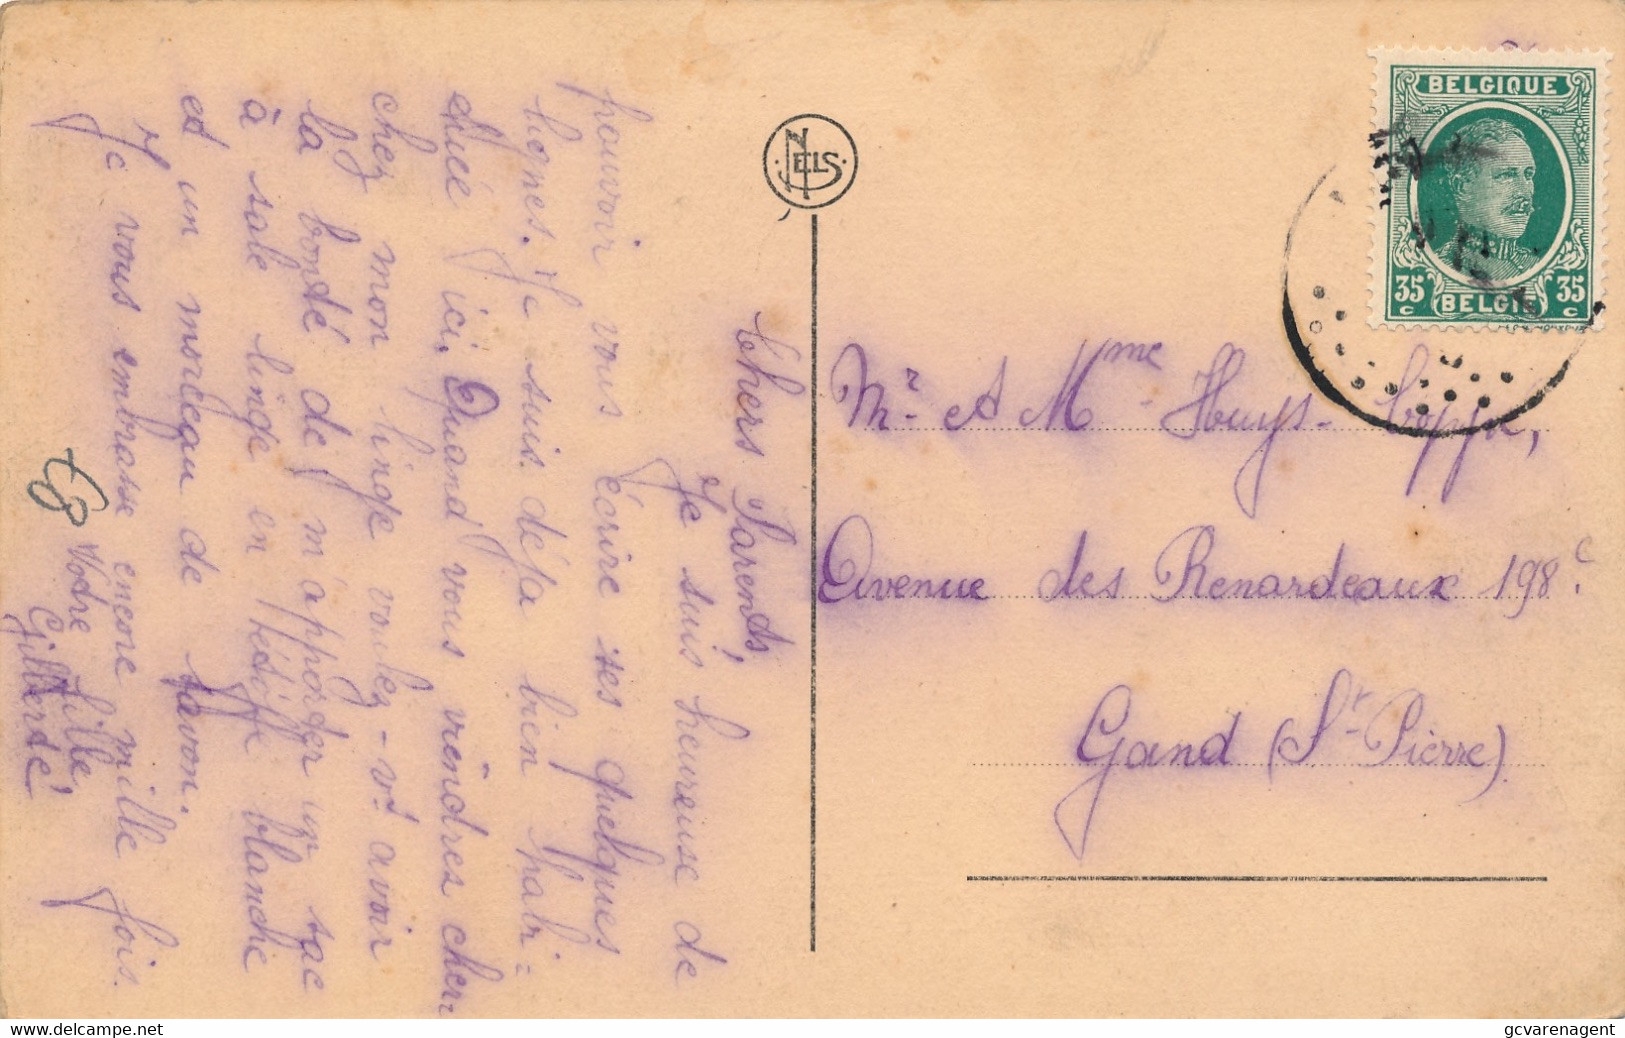 Chers Parents,
Je suis heureuse de
pouvoir vous écrire ses quelques
lignes. Je suis déja bien habi=
tuée ici. Quand vous viendres cher
chez mon linge voulez-vs avoir
la bonté de m'apporter un sac
à sale linge en étoffe blanche
et un morceau de savon.
Je vous embrasse encore mille fois.
Votre fille,
Gilberte
NELS
BELGIQUE
35 c
35 c
BELGIË
Mr et Mme Huys-
Avenue des Renardeaux 198c
Gand (St-Pierre)
delcampe.net
gcvarenagent